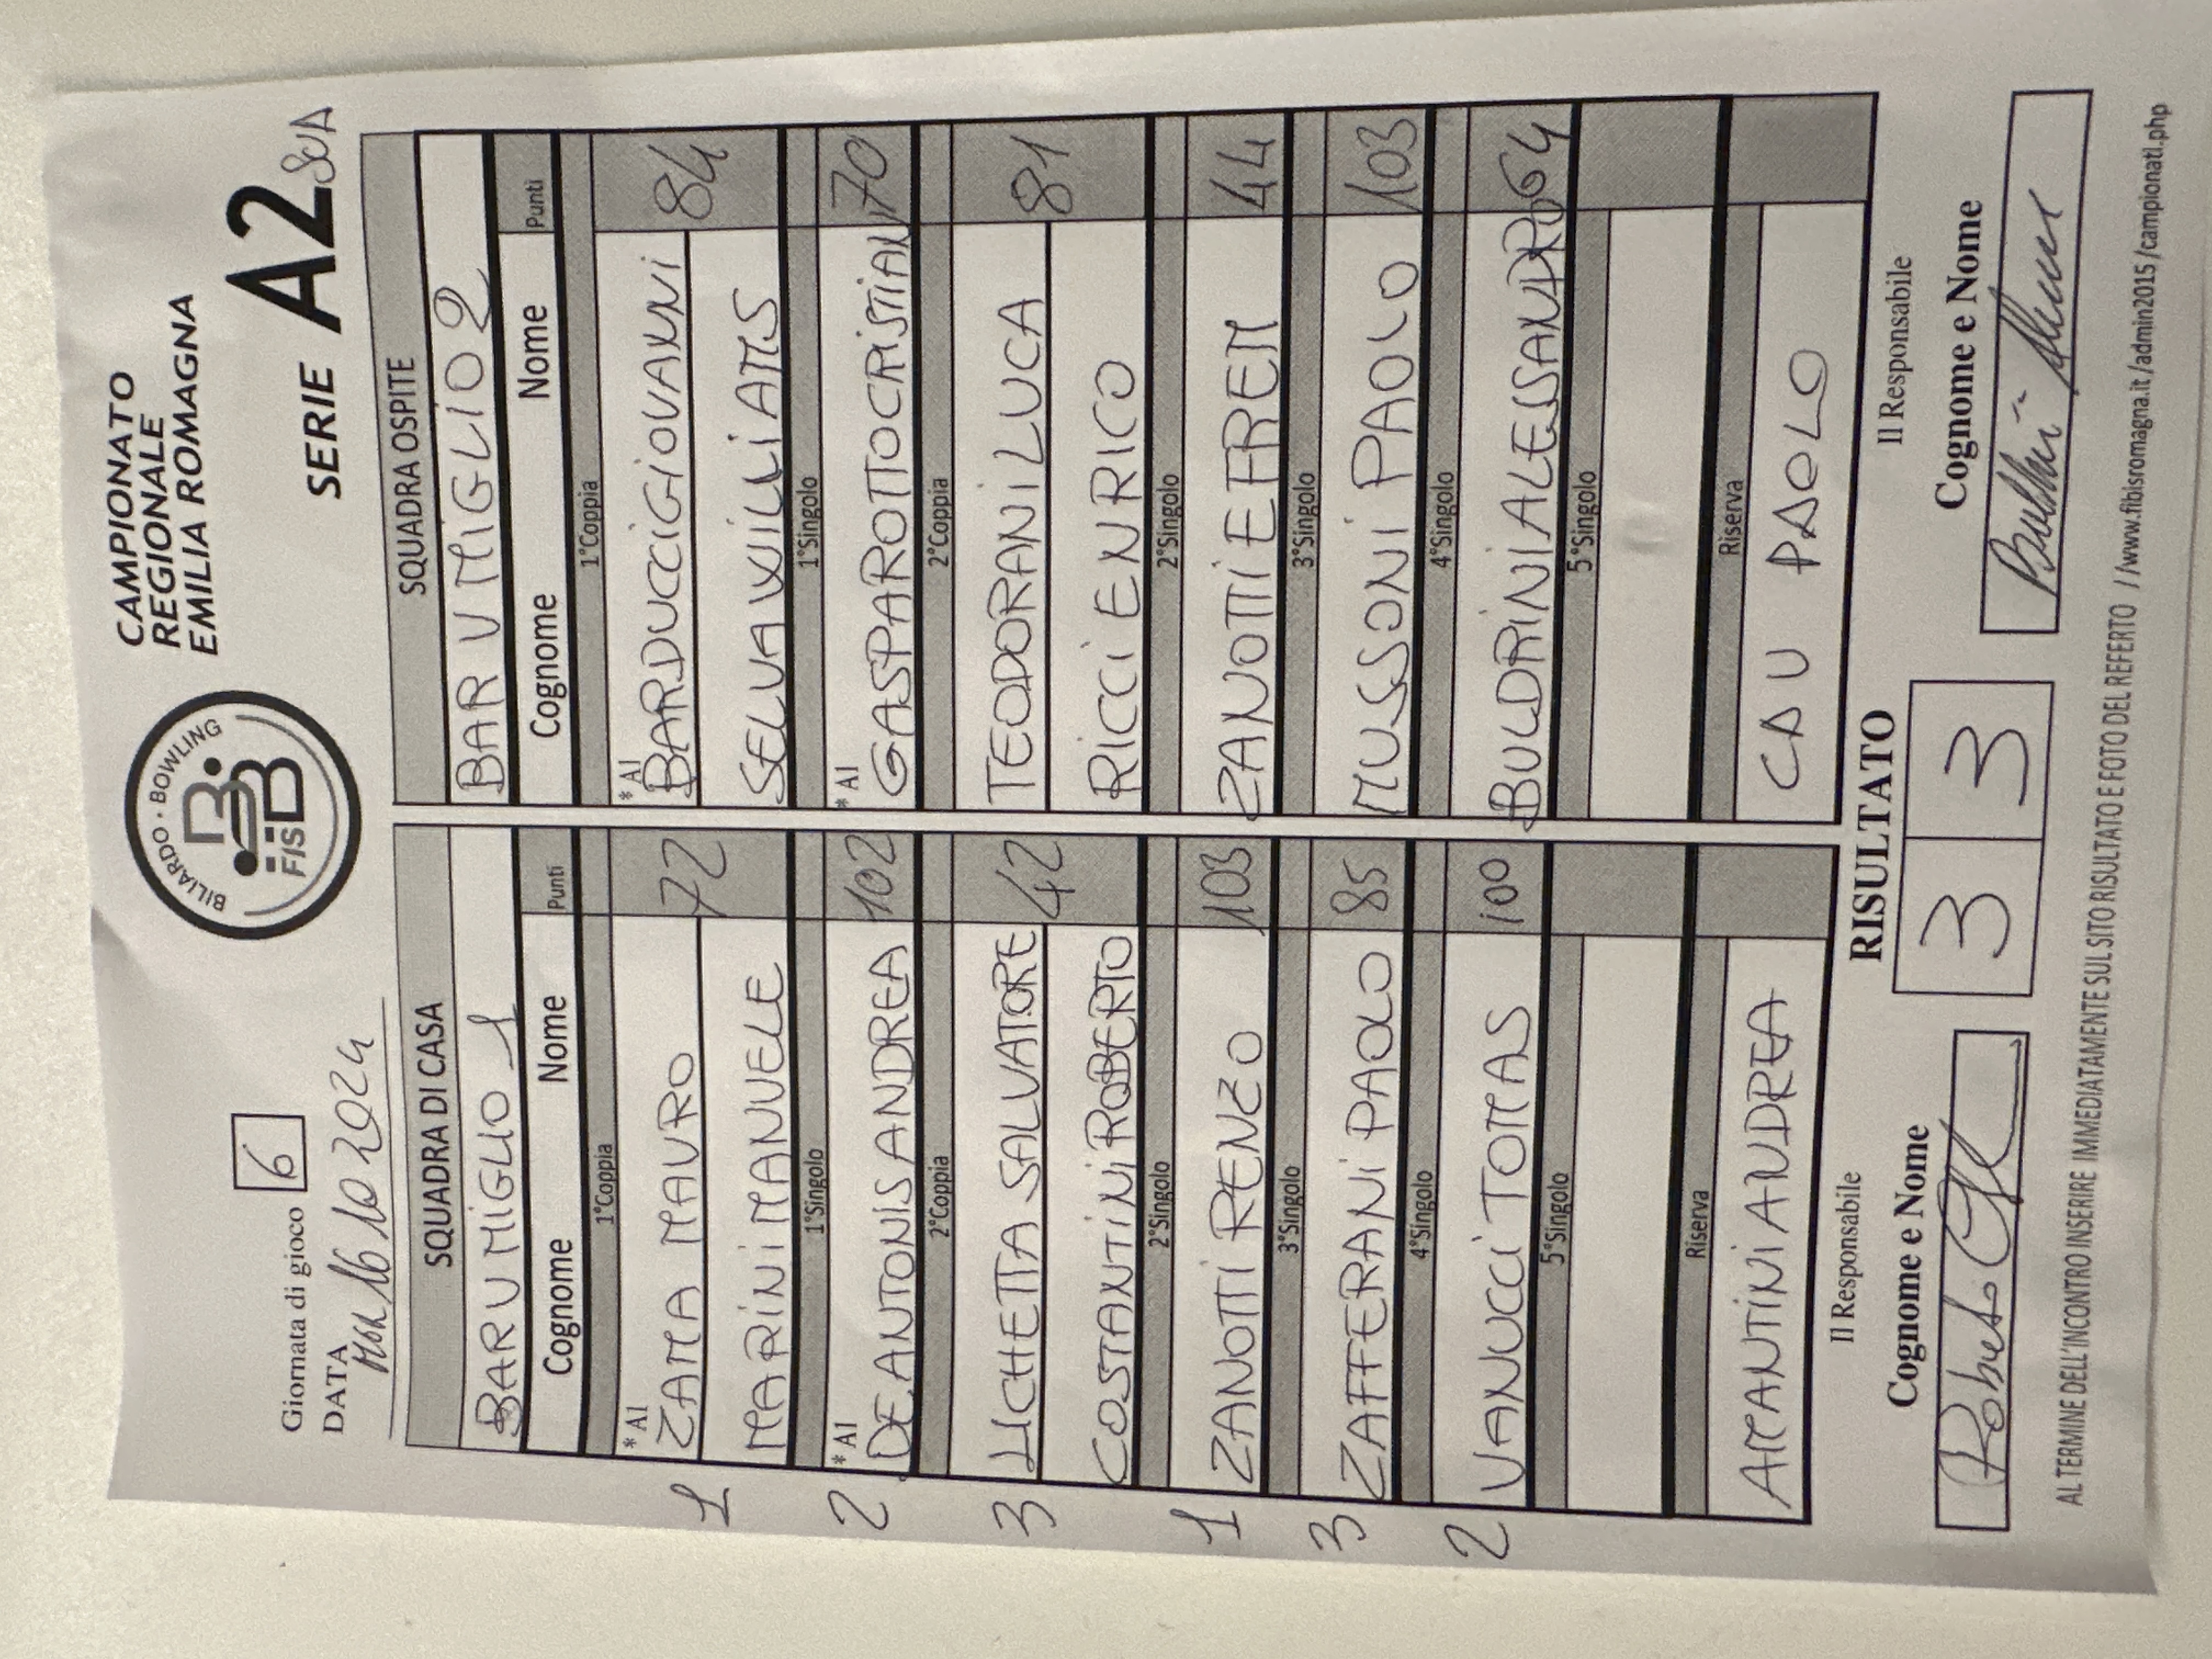 CAMPIONATO
REGIONALE
EMILIA ROMAGNA
BILIARDO · BOWLING
FISBB
Giornata di gioco 6
SERIE A2
DATA 16 10 2024
SQUADRA DI CASA SQUADRA OSPITE
BAR V MiGLIO 1 BAR V MiGLiO 2
Cognome Nome Punti Cognome Nome Punti
1°Coppia 1°Coppia
*A1 *A1
1 ZAMA MAURO 72 BARDUCCi GiOVANNi 84
MARiNi MANUELE SELVA WiLLiAMS
1°Singolo 1°Singolo
*A1 *A1
2 DE ANTONiS ANDREA 102 GASPAROTTO CRiSTiAN 70
2°Coppia 2°Coppia
3 LICHETTA SALVATORE 42 TEODORANi LUCA 81
COSTANTiNi ROBERTO RiCCi ENRICO
2°Singolo 2°Singolo
1 ZANOTTi RENZO 103 ZANOTTi EFREM 44
3°Singolo 3°Singolo
3 ZAFFERANi PAOLO 85 MUSSONi PAOLO 103
4°Singolo 4°Singolo
2 VANUCCi TOMAS 100 BULDRiNi ALESSANDRO 64
5°Singolo 5°Singolo
Riserva Riserva
AMANTiNi ANDREA CAU PAOLO
Il Responsabile RISULTATO Il Responsabile
Cognome e Nome 3 3 Cognome e Nome
Roberto
AL TERMINE DELL'INCONTRO INSERIRE IMMEDIATAMENTE SUL SITO RISULTATO E FOTO DEL REFERTO //www.fibisromagna.it/admin2015/campionati.php